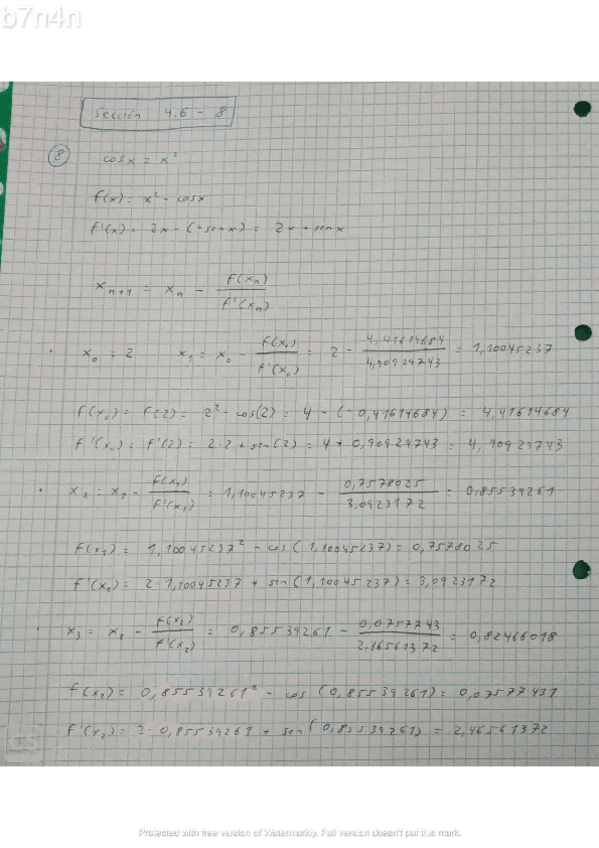 b7n4n
Sección 4.6 - 8
⑧ cosx = x²
f(x) = x² - cosx
f'(x) = 2x - (-senx) = 2x + senx
xₙ₊₁ = xₙ - f(xₙ) / f'(xₙ)
· x₀ = 2 x₁ = x₀ - f(x₀) / f'(x₀) = 2 - 4,41614684 / 4,90929743 = 1,10045237
f(x₀) = f(2) = 2² - cos(2) = 4 - (-0,41614684) = 4,41614684
f'(x₀) = f'(2) = 2·2 + sen(2) = 4 + 0,90929743 = 4,90929743
· x₂ = x₁ - f(x₁) / f'(x₁) = 1,10045237 - 0,7578025 / 3,0923172 = 0,85539261
f(x₁) = 1,10045237² - cos(1,10045237) = 0,7578025
f'(x₁) = 2·1,10045237 + sin(1,10045237) = 3,0923172
· x₃ = x₂ - f(x₂) / f'(x₂) = 0,85539261 - / = 0,82466018
f(x₂) = 0,85539261² - cos(0,85539261) = 0,07577431
f'(x₂) = 2·0,85539261 + sen(0,85539261) = 2,46561372
Protected with free version of Watermarkly. Full version doesn't put this mark.